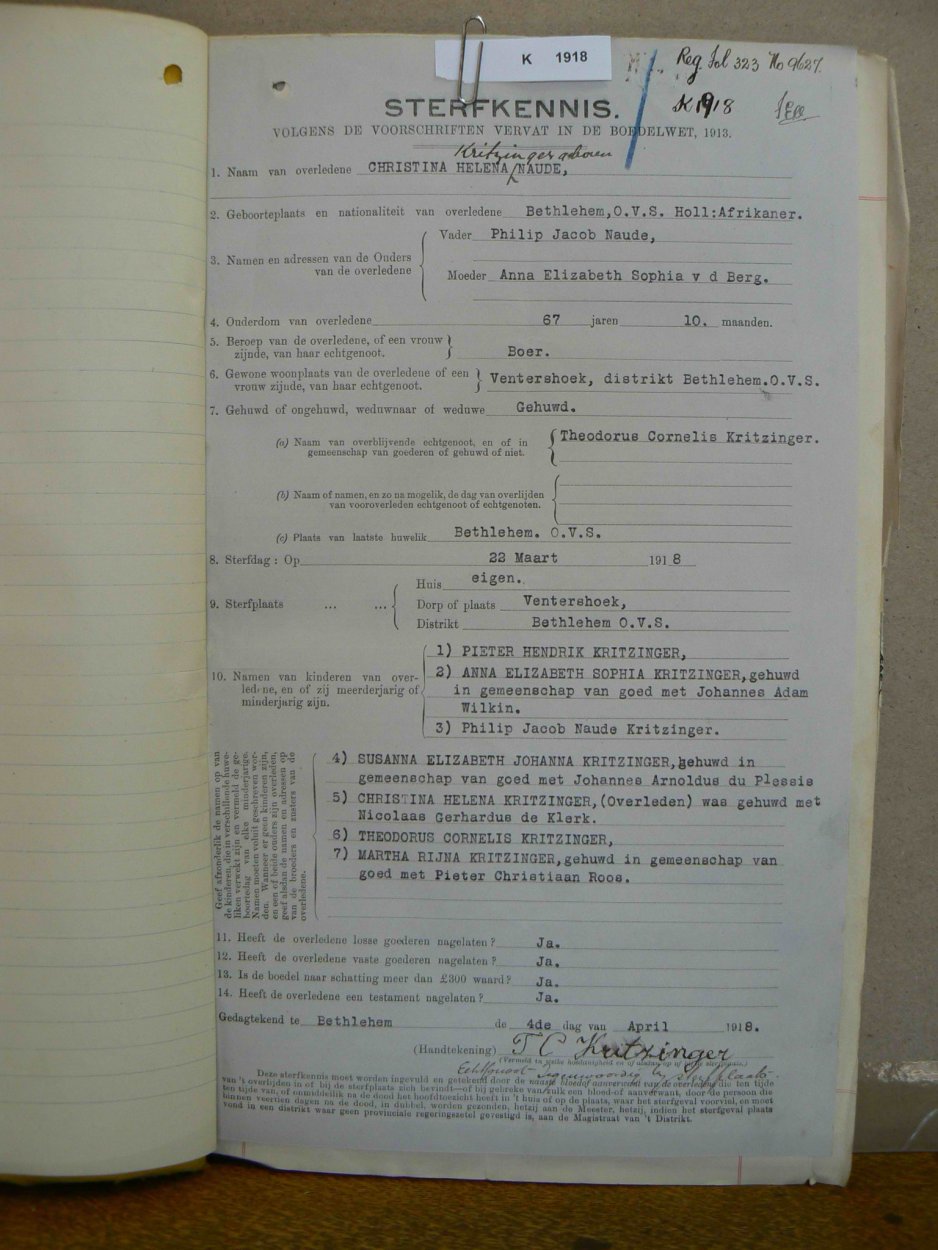 K 1918
Reg. Fol 323 No 9627.
K1918
STERFKENNIS.
VOLGENS DE VOORSCHRIFTEN VERVAT IN DE BOEDELWET, 1913.
Kritzinger geboren
1. Naam van overledene CHRISTINA HELENA NAUDE,
2. Geboorteplaats en nationaliteit van overledene Bethlehem,O.V.S. Holl:Afrikaner.
Vader Philip Jacob Naude,
3. Namen en adressen van de Ouders
van de overledene
Moeder Anna Elizabeth Sophia v d Berg.
4. Ouderdom van overledene 67 jaren 10. maanden.
5. Beroep van de overledene, of een vrouw
zijnde, van haar echtgenoot. Boer.
6. Gewone woonplaats van de overledene of een
vrouw zijude, van haar echtgenoot. Ventershoek, distrikt Bethlehem.O.V.S.
7. Gehuwd of ongehuwd, weduwnaar of weduwe Gehuwd.
(a) Naam van overblijvende echtgenoot, en of in
gemeenschap van goederen of gehuwd of niet. Theodorus Cornelis Kritzinger.
(b) Naam of namen, en zo na mogelik, de dag van overlijden
van vooroverleden echtgenoot of echtgenoten.
(c) Plaats van laatste huwelik Bethlehem. O.V.S.
8. Sterfdag : Op 22 Maart 1918
Huis eigen.
9. Sterfplaats ... ... Dorp of plaats Ventershoek,
Distrikt Bethlehem O.V.S.
1) PIETER HENDRIK KRITZINGER,
10. Namen van kinderen van over-
ledene, en of zij meerderjarig of
minderjarig zijn.
2) ANNA ELIZABETH SOPHIA KRITZINGER,gehuwd
in gemeenschap van goed met Johannes Adam
Wilkin.
3) Philip Jacob Naude Kritzinger.
Geef afzonderlik de namen op van
de kinderen, die in verschillende huwe-
liken verwekt zijn en vermeld de ge-
boortedag van elke minderjarige.
Namen moeten voluit geschreven wor-
den. Wanneer er geen kinderen zijn,
en een of beide ouders zijn overleden,
geef alsdan de namen en adressen op
van de broeders en zusters van de
overledene.
4) SUSANNA ELIZABETH JOHANNA KRITZINGER,gehuwd in
gemeenschap van goed met Johannes Arnoldus du Plessis
5) CHRISTINA HELENA KRITZINGER,(Overleden) was gehuwd met
Nicolaas Gerhardus de Klerk.
6) THEODORUS CORNELIS KRITZINGER,
7) MARTHA RIJNA KRITZINGER,gehuwd in gemeenschap van
goed met Pieter Christiaan Roos.
11. Heeft de overledene losse goederen nagelaten? Ja.
12. Heeft de overledene vaste goederen nagelaten? Ja.
13. Is de boedel naar schatting meer dan £300 waard? Ja.
14. Heeft de overledene een testament nagelaten? Ja.
Gedagtekend te Bethlehem de 4de dag van April 1918.
(Handtekening) T C Kritzinger
Echtgenoot tegenwoordig bij sterfplaats
Deze sterfkennis moet worden ingevuld en getekend door de naaste bloed of aanverwant van de overledene die ten tijde
van 't overlijden in of bij de sterfplaats zich bevindt—of bij gebreke van zulk een bloed-of aanverwant, door de persoon die
ten tijde van, of onmiddellik na de dood het hoofdtoezicht heeft in 't huis of op de plaats, waar het sterfgeval voorviel, en moet
binnen veertien dagen na de dood, in dubbel, worden gezonden, hetzij aan de Meester, hetzij, indien het sterfgeval plaats
vond in een distrikt waar geen provinciale regeringszetel gevestigd is, aan de Magistraat van 't Distrikt.